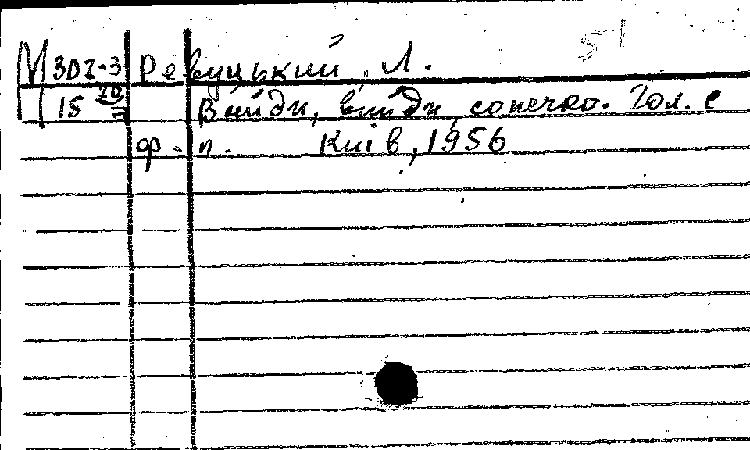 51
М 302-3 Ревуцький, Л.
15 Вийди, вийди, сонечко. Гол. с
ф-п. Київ, 1956